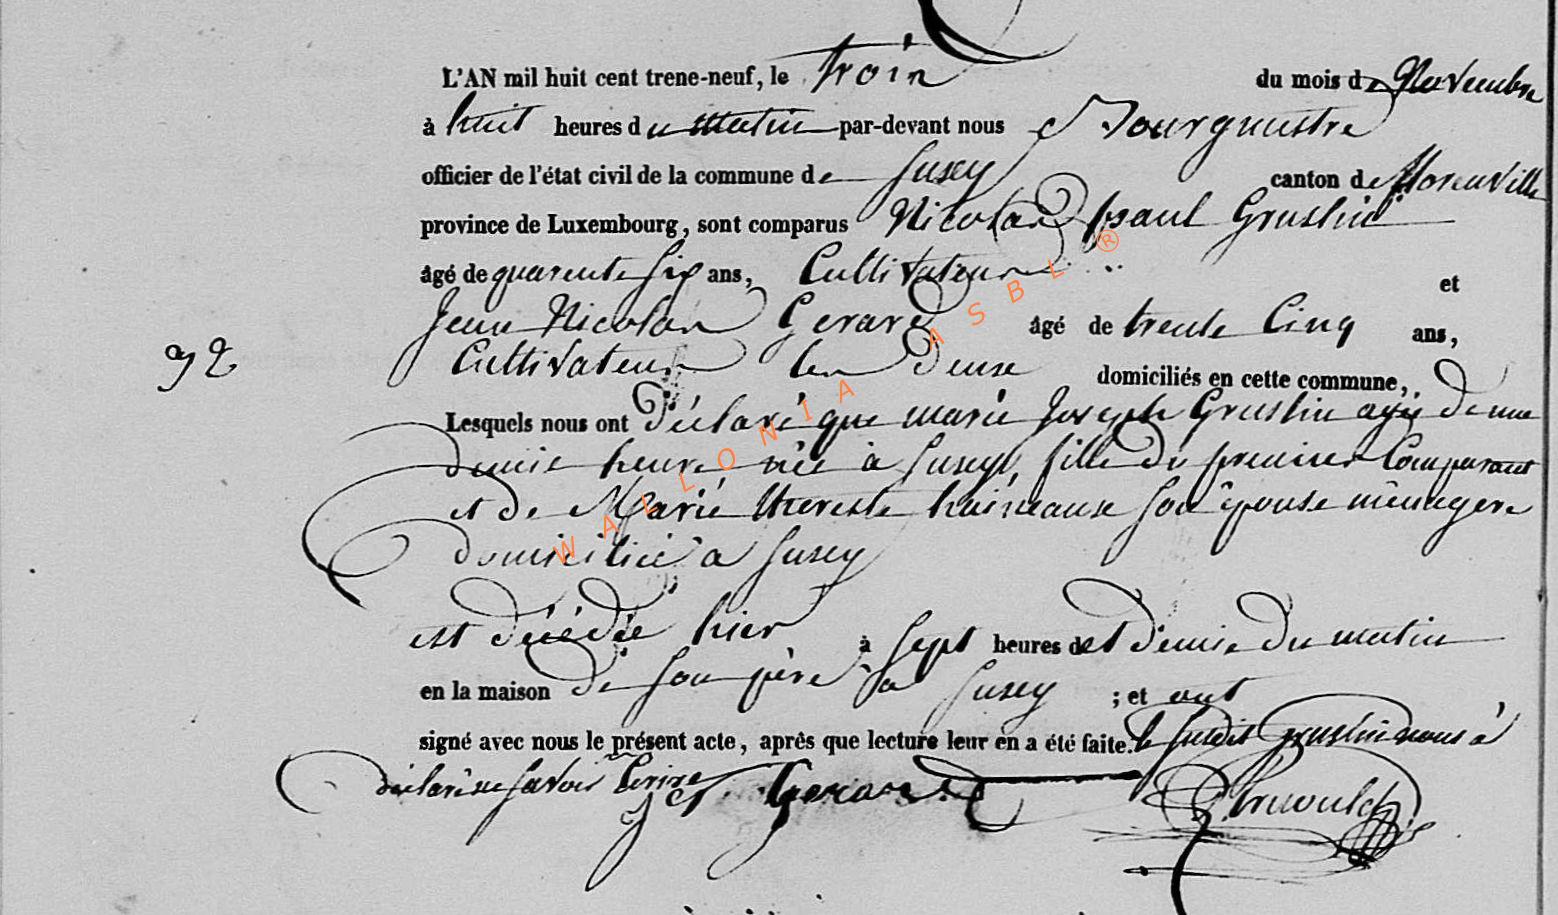 L'AN mil huit cent trene-neuf, le trois du mois de Novembre
à huit heures du matin par-devant nous Bourgmestre
officier de l'état civil de la commune de Suxey canton de florenville
province de Luxembourg, sont comparus Nicolas paul Gruslin
âgé de quarente six ans, Cultivateur et
Jean Nicolas Gerard âgé de trente Cinq ans,
92
Cultivateur les deux domiciliés en cette commune,
Lesquels nous ont déclaré que marie Joseph Gruslin agée de une
demie heure née à Suxey, fille du premier Comparant
et de Marie therese haineaux son épouse ménagere
domiciliée a Suxey
est décédée hier à sept heures et demie du matin
en la maison de son père à Suxey ; et ont
signé avec nous le présent acte, après que lecture leur en a été faite. le susdit Gruslin nous à
déclaré ne savoir Ecrire
J N Gerard
WALLONIA ASBL ®